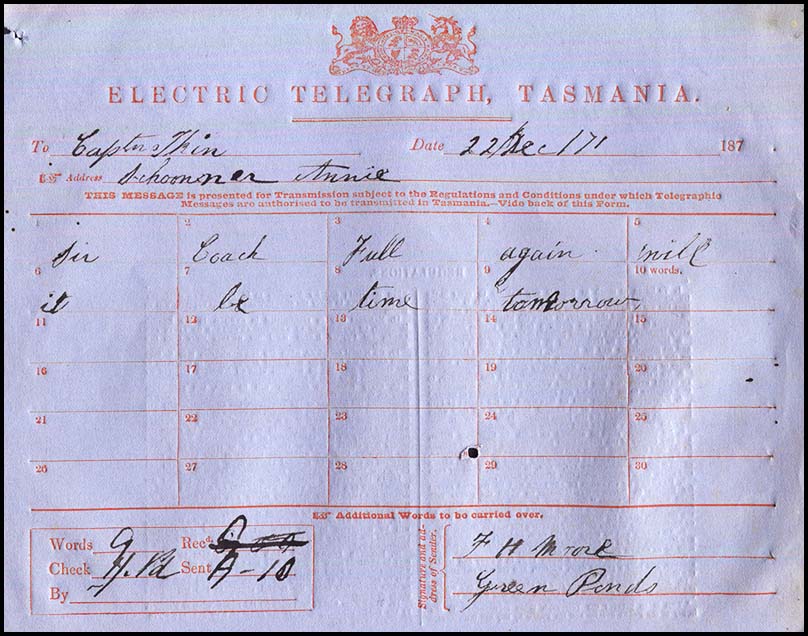 ELECTRIC TELEGRAPH, TASMANIA.
To Captn Thin Date 22 Dec 171 187
Address Schoonner Annie
THIS MESSAGE is presented for Transmission subject to the Regulations and Conditions under which Telegraphic
Messages are authorised to be transmitted in Tasmania.—Vide back of this Form.
1 2 3 4 5
Sir Coach Full again will
6 7 8 9 10 words.
it be time tomorrow
11 12 13 14 15
16 17 18 19 20
21 22 23 24 25
26 27 28 29 30
Additional Words to be carried over.
Words 9 Recd.
Check Sent A-10
By
Signature and ad-
dress of Sender.
F H Moore
Green Ponds